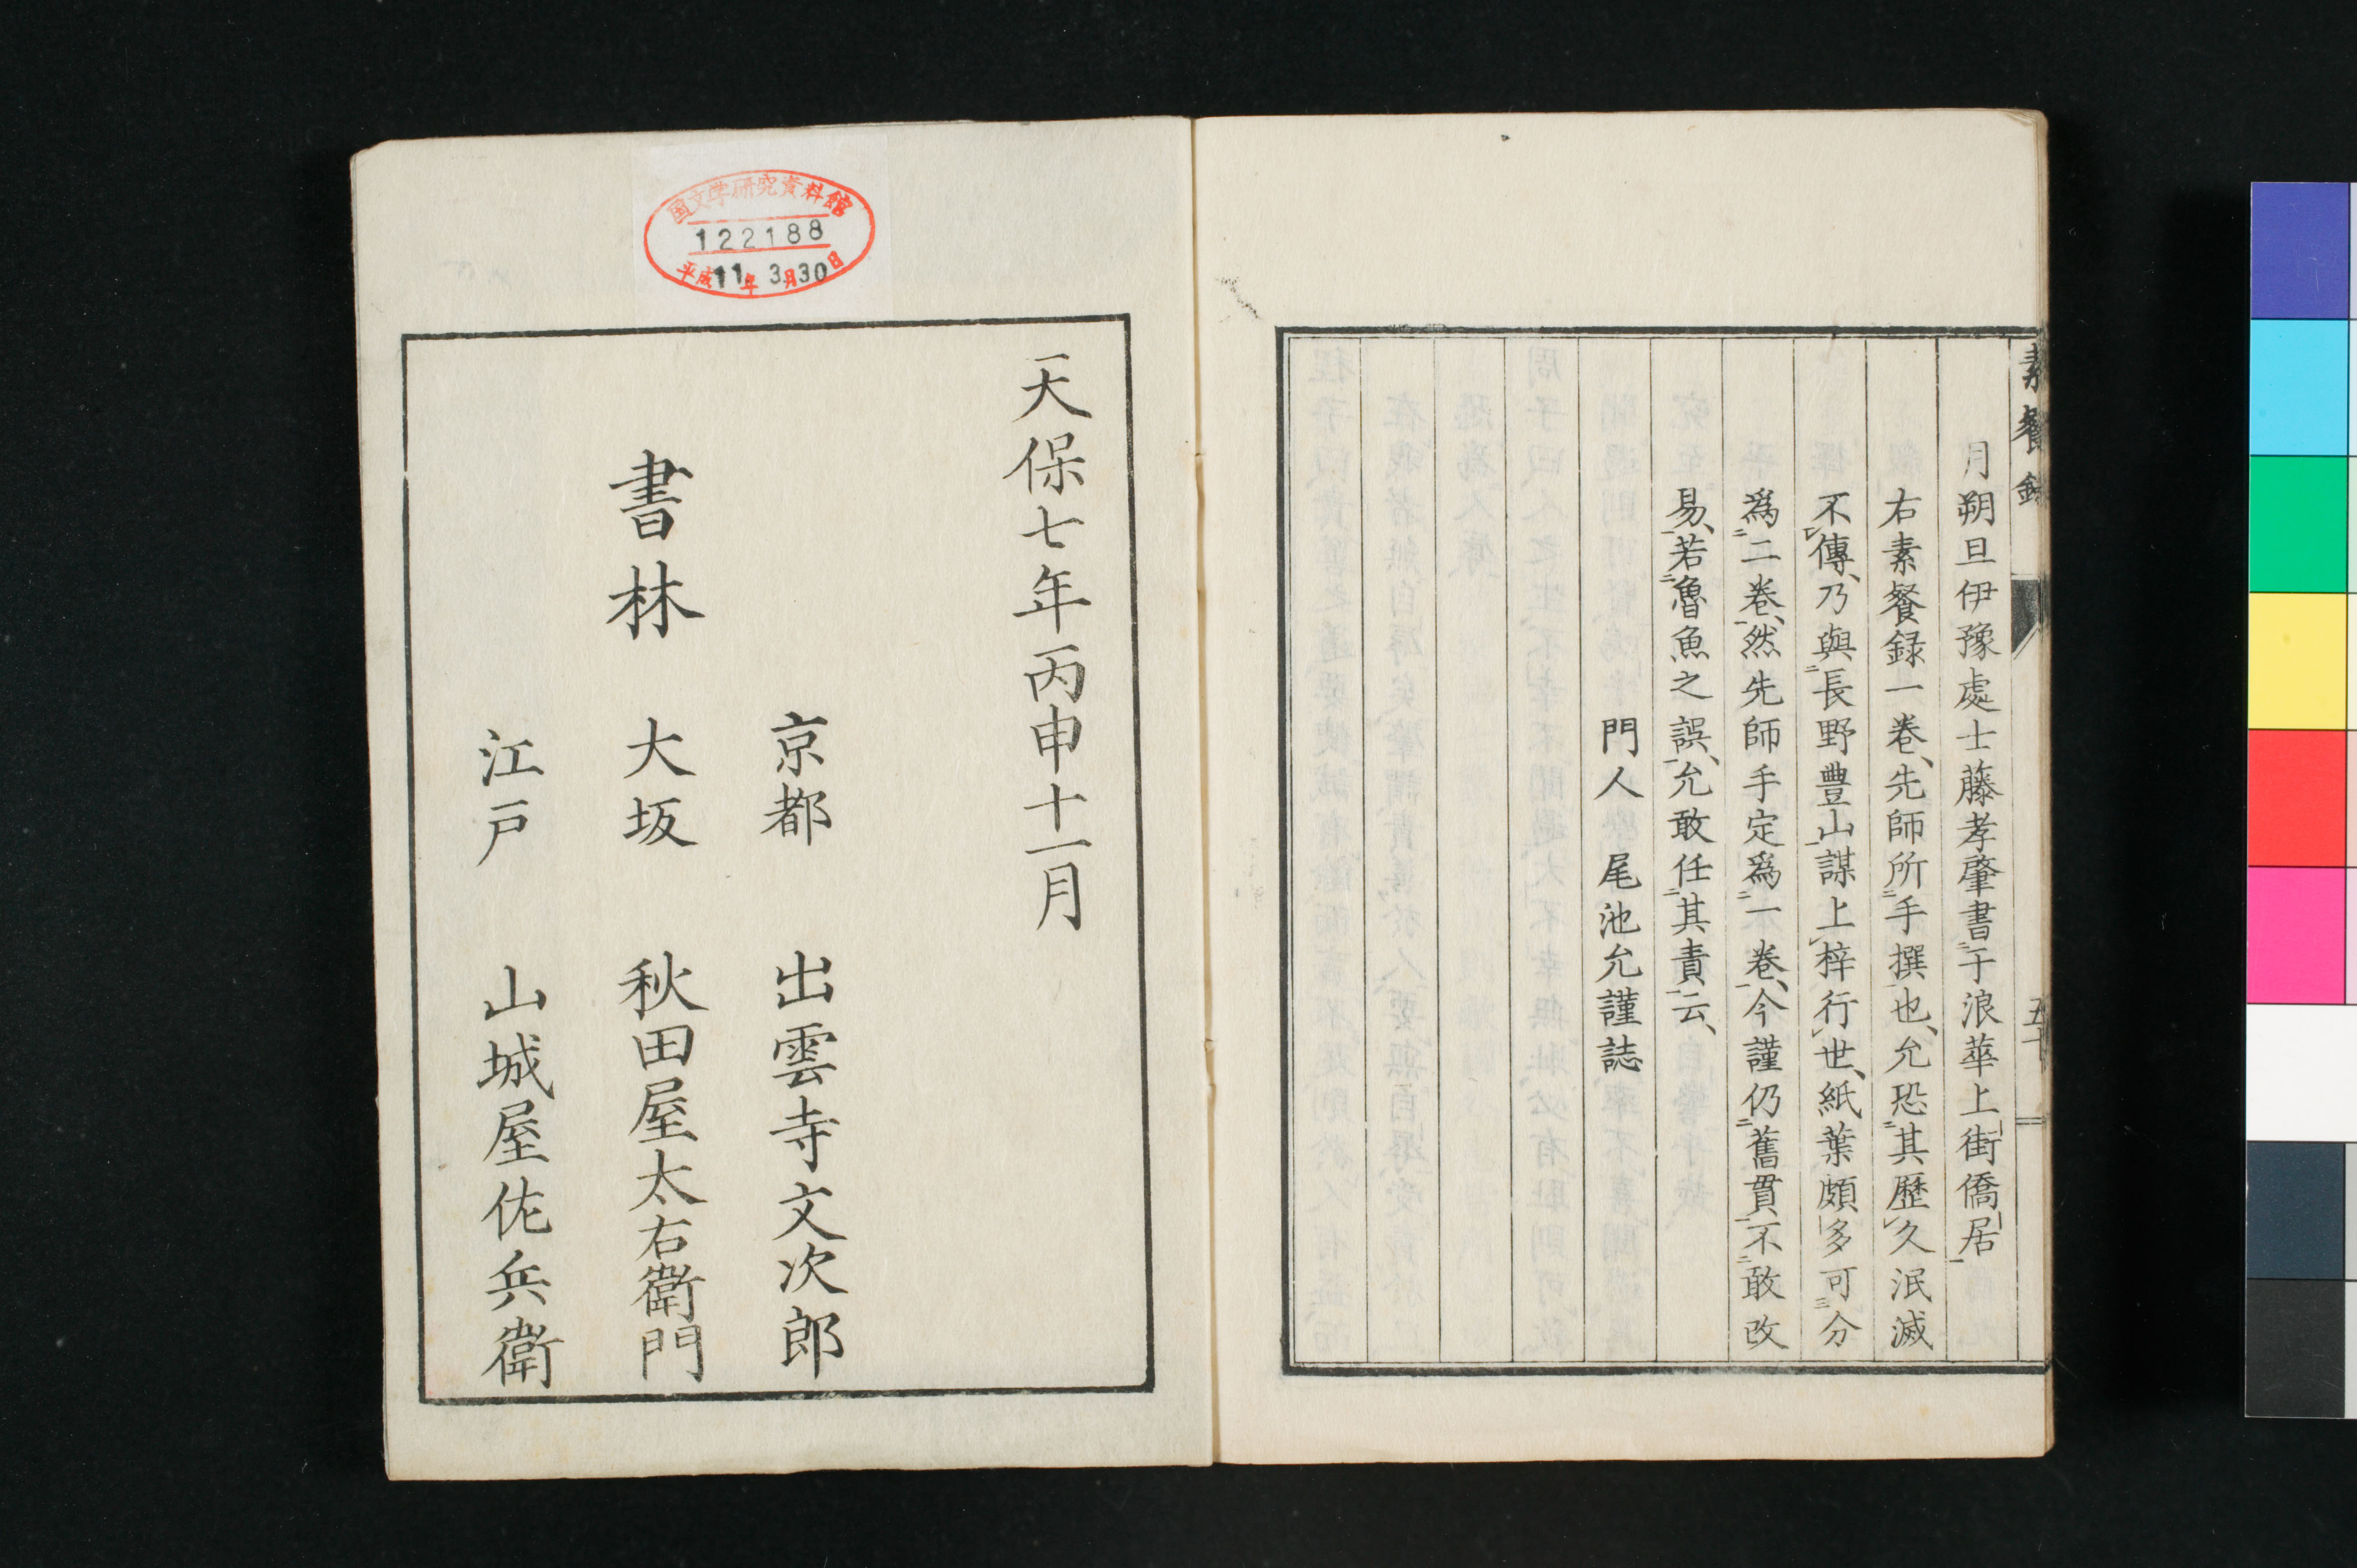 素餐録
五十
月朔旦伊豫處士藤孝肇書于浪華上街僑居
右素餐録一卷、先師所手撰也、允恐其歷久泯滅
不傳、乃與長野豊山謀上梓行世、紙葉頗多可分
爲二卷、然先師手定爲一卷、今謹仍舊貫、不敢改
易、若魯魚之誤、允敢任其責云、
門人 尾池允謹誌
国文学研究資料館
122188
平成11年3月30日
天保七年丙申十一月
京都 出雲寺文次郎
書林 大坂 秋田屋太右衛門
江戸 山城屋佐兵衛